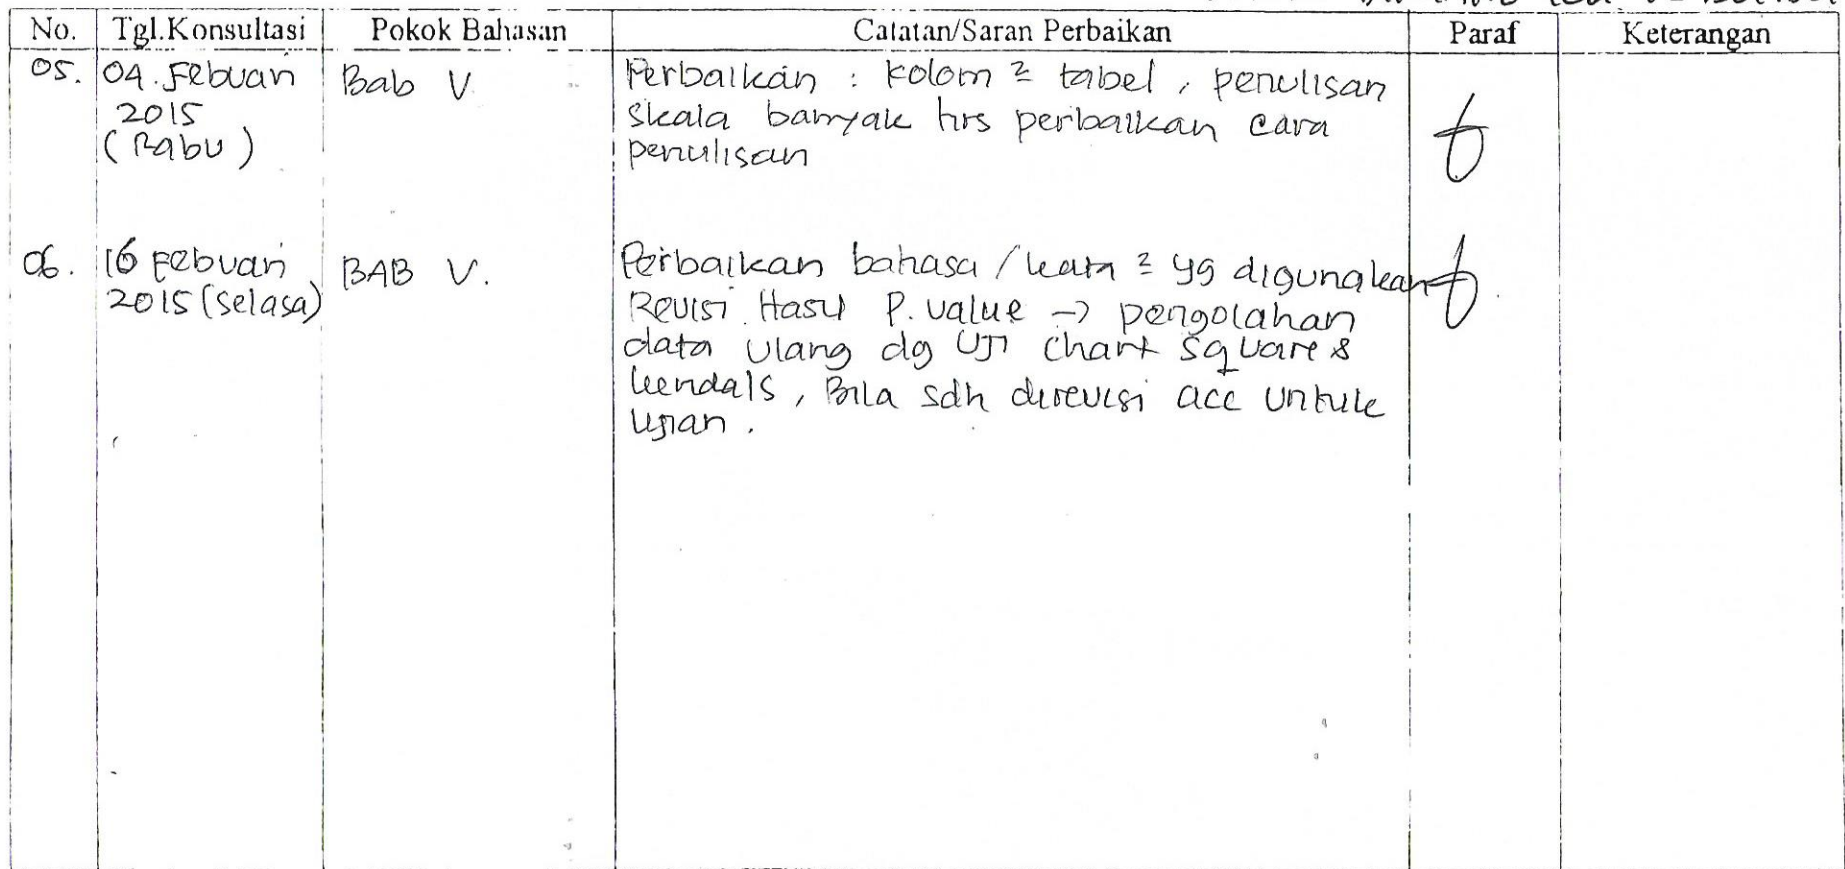 No. Tgl.Konsultasi Pokok Bahasan Catatan/Saran Perbaikan Paraf Keterangan
05. 04. Febuari 2015 (Rabu) Bab V. Perbaikan : kolom ² tabel, penulisan
skala banyak hrs perbaikan cara
penulisan
06. 16 Febuari 2015 (selasa) BAB V. Perbaikan bahasa / kata ² yg digunakan
Revisi Hasil P. value → pengolahan
data ulang dg Uji Chart Square &
kendals, Bila sdh direvisi acc untuk
Ujian.